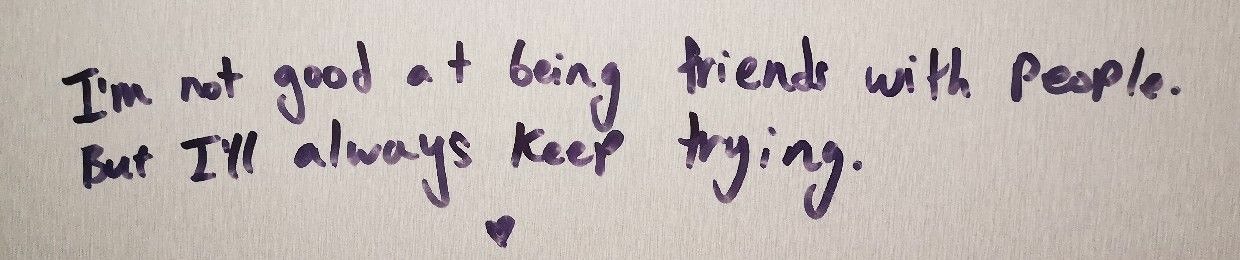 I'm not good at being friends with people.
But I'll always keep trying.
♥